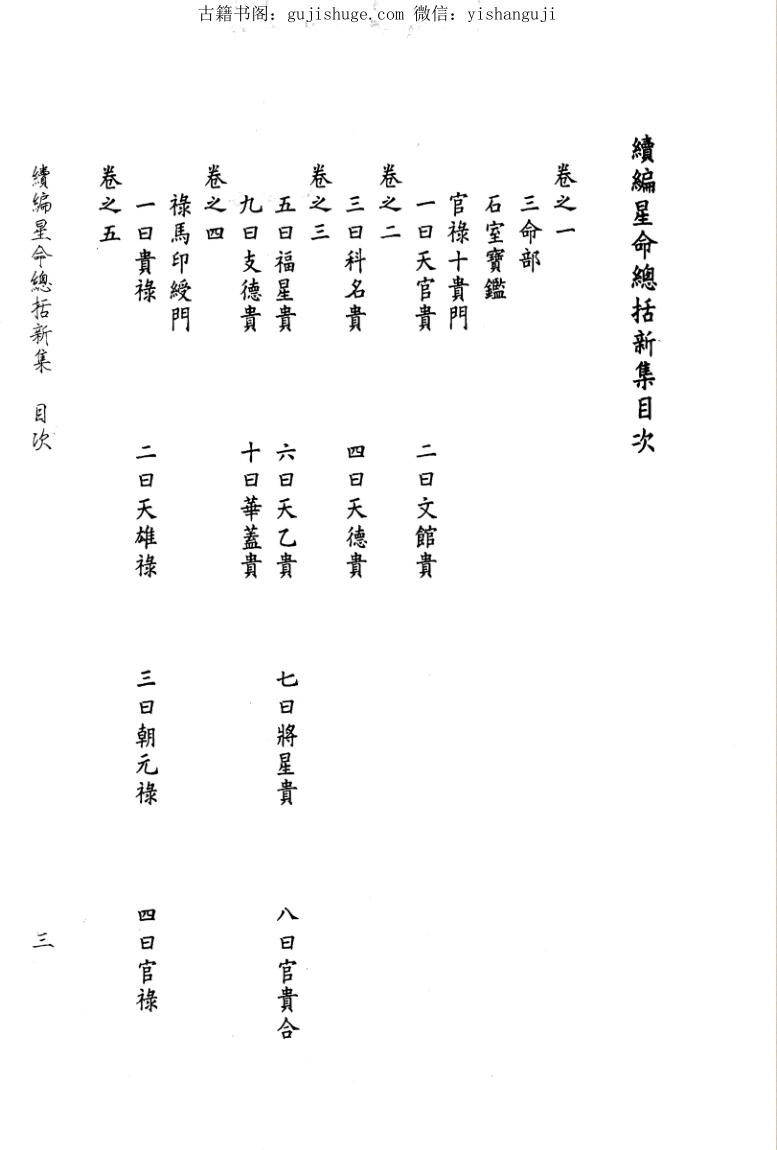 古籍书阁：gujishuge.com 微信：yishanguji
續編星命總括新集目次
卷之一
三命部
石室寶鑑
官祿十貴門
一曰天官貴 二曰文館貴
卷之二
三曰科名貴 四曰天德貴
卷之三
五曰福星貴 六曰天乙貴 七曰將星貴 八曰官貴合
九曰支德貴 十曰華蓋貴
卷之四
祿馬印綬門
一曰貴祿 二曰天雄祿 三曰朝元祿 四曰官祿
卷之五
續編星命總括新集 目次
三